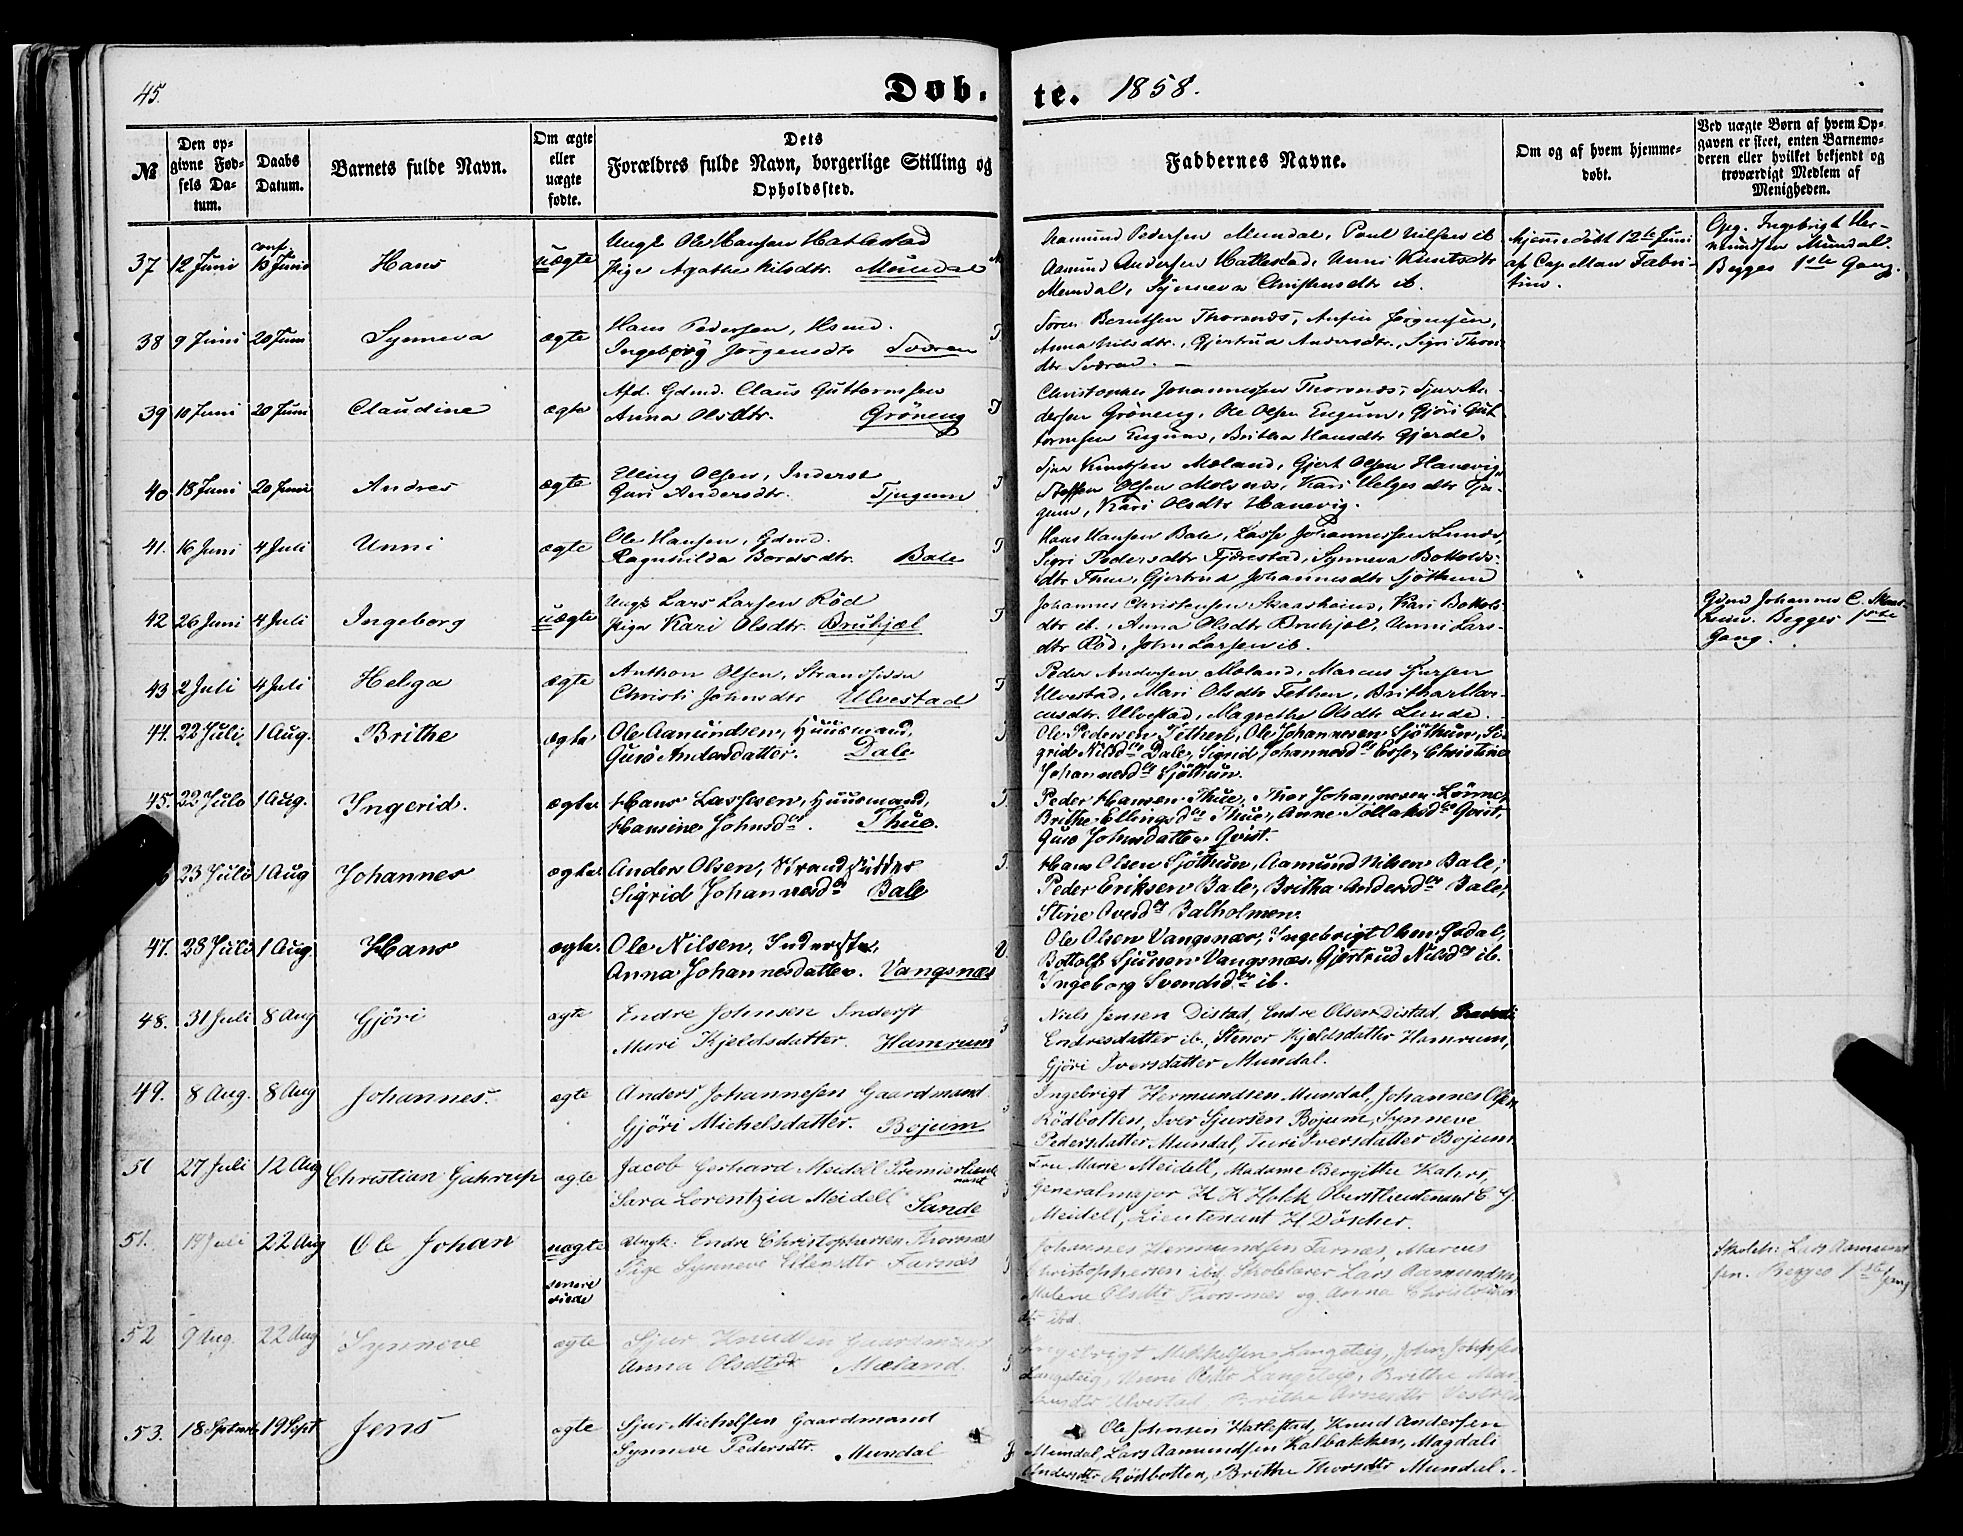 45.
Døb.
te. 1858.
№
Den op-
givne Fød-
sels Da-
tum.
Daabs
Datum.
Barnets fulde Navn.
Om ægte
eller
uægte
fødte.
Dets
Forældres fulde Navn, borgerlige Stilling og
Opholdssted.
Faddernes Navne.
Om og af hvem hjemme-
døbt.
Ved uægte Børn af hvem Op-
gaven er skeet, enten Barnemo-
deren eller hvilket bekjendt og
troværdigt Medlem af
Menigheden.
37 12 Juni conf. 13 Juni Hans uægte
Ungk Ole Hansen Hatlestad
Pige Agathe Nilsdtr. Mundal
Aamund Pedersen Mundal, Poul Nilsen ib
Aamund Andersen Hatlestad, Unni Knutsdtr
Mundal, Synneva Christensdtr ib.
hjemmedøbt 12te Juni
af Cap. Man Fabri-
tius.
Opg. Ingebrigt Her-
mundsen Mundal.
Begges 1ste Gang.
38 9 Juni 20 Juni Synneva ægte
Hans Pedersen, Hsmd.
Ingeborg Jørgensdtr Sværen
Søren Berntsen Thorsnæs, Anfin Jørgensen,
Anna Nilsdtr., Gjertrud Andersdtr., Sigri Thors-
dtr Sværen. —
39 10 Juni 20 Juni Claudine ægte
Afd. Gdmd. Claus Guttormsen
Anna Olsdtr. Grøneng
Christopher Johannessen Thorsnæs, Sjur An-
dersen Grøneng, Ole Olsen Engum, Gjøri Gut-
tormsen Engum, Britha Hansdtr Gjerde.
40 18 Juni 20 Juni Andres ægte
Elling Olsen, Inderst
Guri Andersdtr. Tjugum
Sjur Knutsen Mæland, Gjert Olsen Hanevig,
Steffen Olsen Molsnæs, Kari Helgesdtr Tju-
gum, Kari Olsdtr Hanevig.
41. 16 Juni 4 Juli Unni ægte
Ole Hansen, Gdmd.
Ragnhilda Bordsdtr. Bale
Hans Hansen Bale, Lasse Johannessen Lunde,
Sigri Pedersdtr Fjørestad, Synneva Botolds-
dtr Thue, Gjertrud Johannesdtr Sjøthun
42 26 Juni 4 Juli Ingeborg uægte
Ungk Lars Larsen Rød
Pige Kari Olsdtr. Bruhjæl
Johannes Christensen Skaasheim, Kari Botols-
dtr ib., Anna Olsdtr Bruhjæl, Anni Lars-
dtr Rød, John Larsen ib.
Gdmd Johannes C. Skaas-
heim. Begges 1ste
Gang.
43 2 Juli 4 Juli Helga ægte
Anthon Olsen, Strandsidder
Christi Johnsdtr Ulvestad
Peder Andersen Moland, Marcus Sjursen
Ulvestad, Mari Olsdtr Tethen, Britha Mar-
cusdtr. Ulvestad, Magrethe Olsdtr Lunde.
44. 22 Juli. 1 Aug. Brithe ægte
Ole Aamundsen, Huusmand,
Guro Andersdatter. Dale
Ole Pedersen Tethen, Ole Johannesen Sjøthun, Si-
grid Nilsdtr Dale, Sigrid Johannesdtr Esse, Christine
Johannesdtr Sjøthun.
45. 22 Juli 1 Aug. Ingerid. ægte
Hans Lassesen, Huusmand,
Hansine Johnsdtr. Thue.
Peder Hansen Thue, Thor Johannesen Lønne,
Brithe Ellingsdtr Thue, Anne Tollaksdtr Qvist,
Guro Johnsdatter Qvist.
23 Juli 1 Aug Johannes ægte
Anders Olsen, Strandsidder
Sigrid Johannesdtr Bale
Hans Olsen Sjøthun, Aamund Nilsen Bale,
Peder Eriksen Bale, Britha Andersdtr Bale,
Stine Ovesdtr Balholmen.
47. 28 Juli 1 Aug. Hans ægte
Ole Nilsen, Inderste,
Anna Johannesdatter. Vangsnæs
Ole Olsen Vangsnæs, Ingebrigt Olsen Indal,
Bottolf Sjursen Vangsnæs, Gjertrud Nilsdtr ib.
Ingeborg Svendsdtr ib.
48. 31 Juli 8 Aug Gjøri ægte
Endre Johnsen Inderst
Mari Kjeldsdatter. Hamrum
Niels Jensen Distad, Endre Olsen Distad,
Endresdatter ib., Stenor Kjeldsdatter Hamrum,
Gjøri Iversdatter Mundal.
49. 8 Aug. 8 Aug Johannes. ægte
Anders Johannesen Gaardmand
Gjøri Michelsdatter. Bojum
Ingebrigt Hermundsen Mundal, Johannes Olsen
Rødbotten, Iver Sjursen Bojum, Synneve
Pedersdatter Mundal, Turi Iversdatter Bojum
51 27 Juli 12 Aug Christian Gahrup ægte
Jacob Gerhard Meidell Premierlieute-
nant
Sara Lorentzia Meidell Sande
Fru Marie Meidell, Madame Bergithe Kahrs,
Generalmajor H K Holck Oberstlieutenant C G
Meidell, Lieutenant H Døscher.
51. 19 Juli 22 Aug Ole Johan uægte
senere
viede
Ungk. Endre Christophersen Thorsnæs
Pige Synneve Eilensdtr Farnæs
Johannes Hermundsen Farnæs, Marcus
Christophersen ibd, Skolelærer Lars Aamundsen,
Malene Olsdtr Thorsnæs og Anna Christopher
dtr ibd.
Skolelr. Lars Aamund-
sen. Begges 1ste Gang
52 9 Aug. 22 Aug Synneve ægte
Sjur Knudsen Gaardmand
Anna Olsdtr Mæland.
Ingebrigt Mikkelsen Langeteig, John Johnsen
Langeteig, Unni Olsdtr Langeteig, Brithe Mar-
kusdtr Ulvestad Brithe Arnesdtr
53. 18 Septmbr 19 Sept Jens ægte
Sjur Michelsen Gaardmand
Synneve Pedersdtr. Mundal
Ole Johnsen Hatlestad, Knud Andersen
Mundal, Lars Aamundsen Kalbakken, Magdali
Andersdtr Rødbotten, Brithe Thorsdtr Mundal.